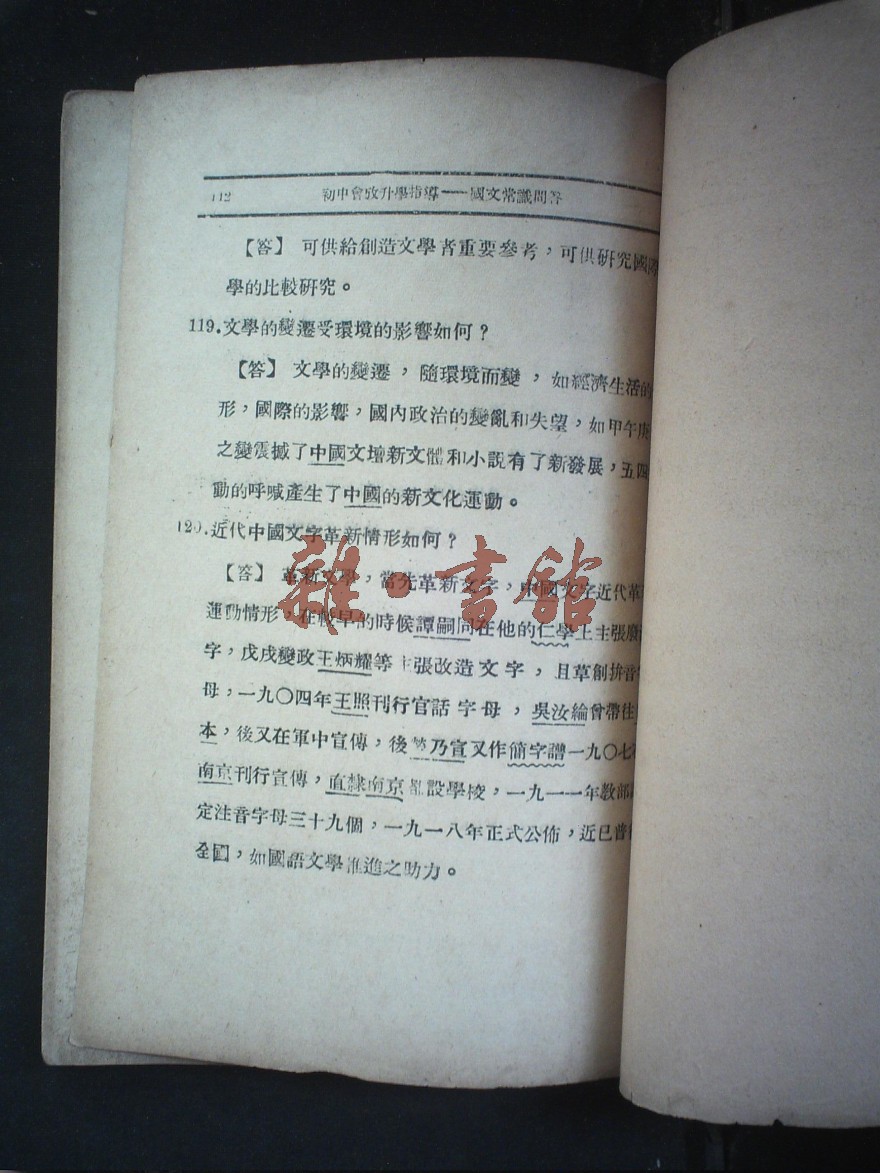 112 初中會攷升學指導——國文常識問答
【答】 可供給創造文學者重要參考，可供研究國
學的比較研究。
119.文學的變遷受環境的影響如何？
【答】 文學的變遷，隨環境而變，如經濟生活的
形，國際的影響，國內政治的變亂和失望，如甲午庚
之變震撼了中國文壇新文體和小説有了新發展，五四
動的呼喊產生了中國的新文化運動。
120.近代中國文字革新情形如何？
【答】 革新文學，當先革新文字，中國文字近代革
運動情形，在較早的時候譚嗣同在他的仁學上主張廢
字，戊戌變政王炳耀等主張改造文字，且草創拼音
母，一九〇四年王照刊行官話字母，吳汝綸曾帶往
本，後又在軍中宣傳，後勞乃宣又作簡字譜一九〇七
南京刊行宣傳，直隸南京設學校，一九一一年教部
定注音字母三十九個，一九一八年正式公佈，近已普
全國，如國語文學推進之助力。
雜·書館